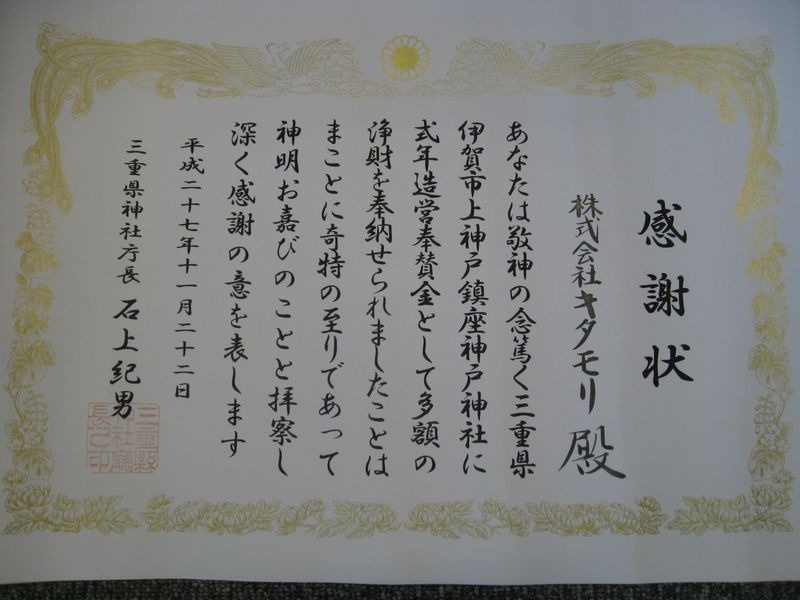 感謝状
株式会社キタモリ 殿
あなたは敬神の念篤く三重県
伊賀市上神戸鎮座神戸神社に
式年造営奉賛金として多額の
浄財を奉納せられましたことは
まことに奇特の至りであって
神明お嘉びのことと拝察し
深く感謝の意を表します
平成二十七年十一月二十二日
三重県神社庁長 石上紀男
三重縣
神社廳
長之印